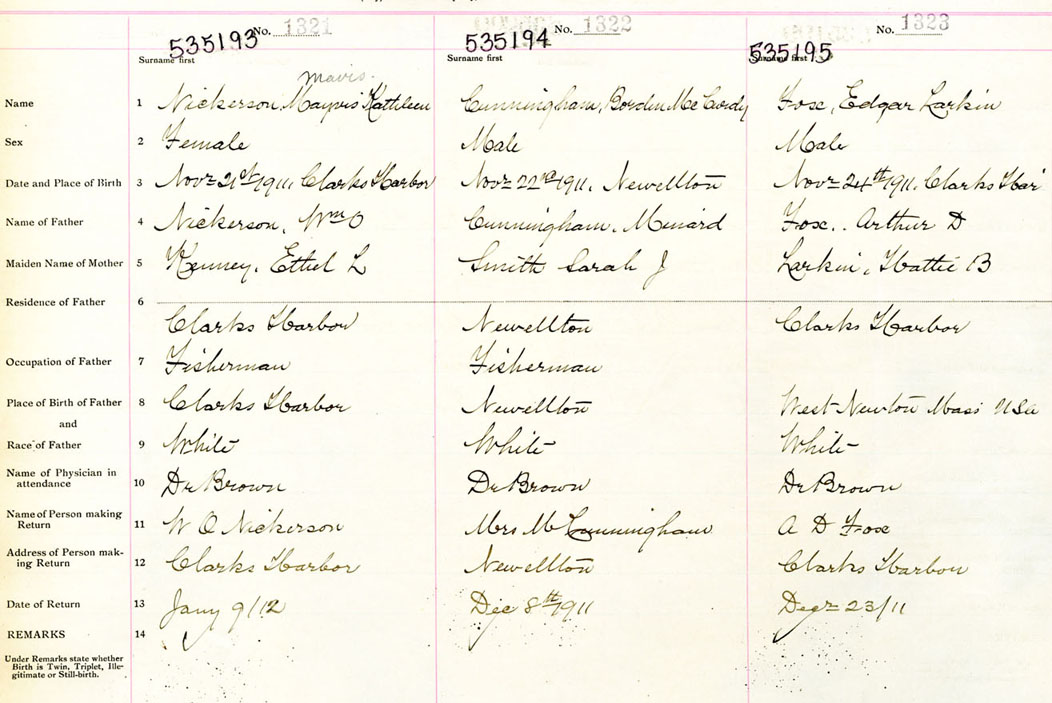 No. 1321 No. 1322 No. 1323
535193 535194 535195
Surname first Surname first Surname first
Mavis
Name 1 Nickerson, Mayvis Kathleen Cunningham, Borden McCurdy Fox, Edgar Larkin
Sex 2 Female Male Male
Date and Place of Birth 3 Novr 21st 1911, Clarks Harbor Novr 22nd 1911, Newellton Novr 24th 1911, Clarks Har
Name of Father 4 Nickerson, Wm O Cunningham, Menard Fox, Arthur D
Maiden Name of Mother 5 Kenney, Ethel L Smith Sarah J Larkin, Hattie B
Residence of Father 6
Clarks Harbor Newellton Clarks Harbor
Occupation of Father 7 Fisherman Fisherman
Place of Birth of Father 8 Clarks Harbor Newellton West Newton Mass USA
and
Race of Father 9 White White White
Name of Physician in
attendance 10 Dr Brown Dr Brown Dr Brown
Name of Person making
Return 11 W O Nickerson Mrs M Cunningham A D Fox
Address of Person mak-
ing Return 12 Clarks Harbor Newellton Clarks Harbor
Date of Return 13 Jany 9/12 Dec 8th 1911 Decr 23/11
REMARKS 14
Under Remarks state whether
Birth is Twin, Triplet, Ille-
gitimate or Still-birth.